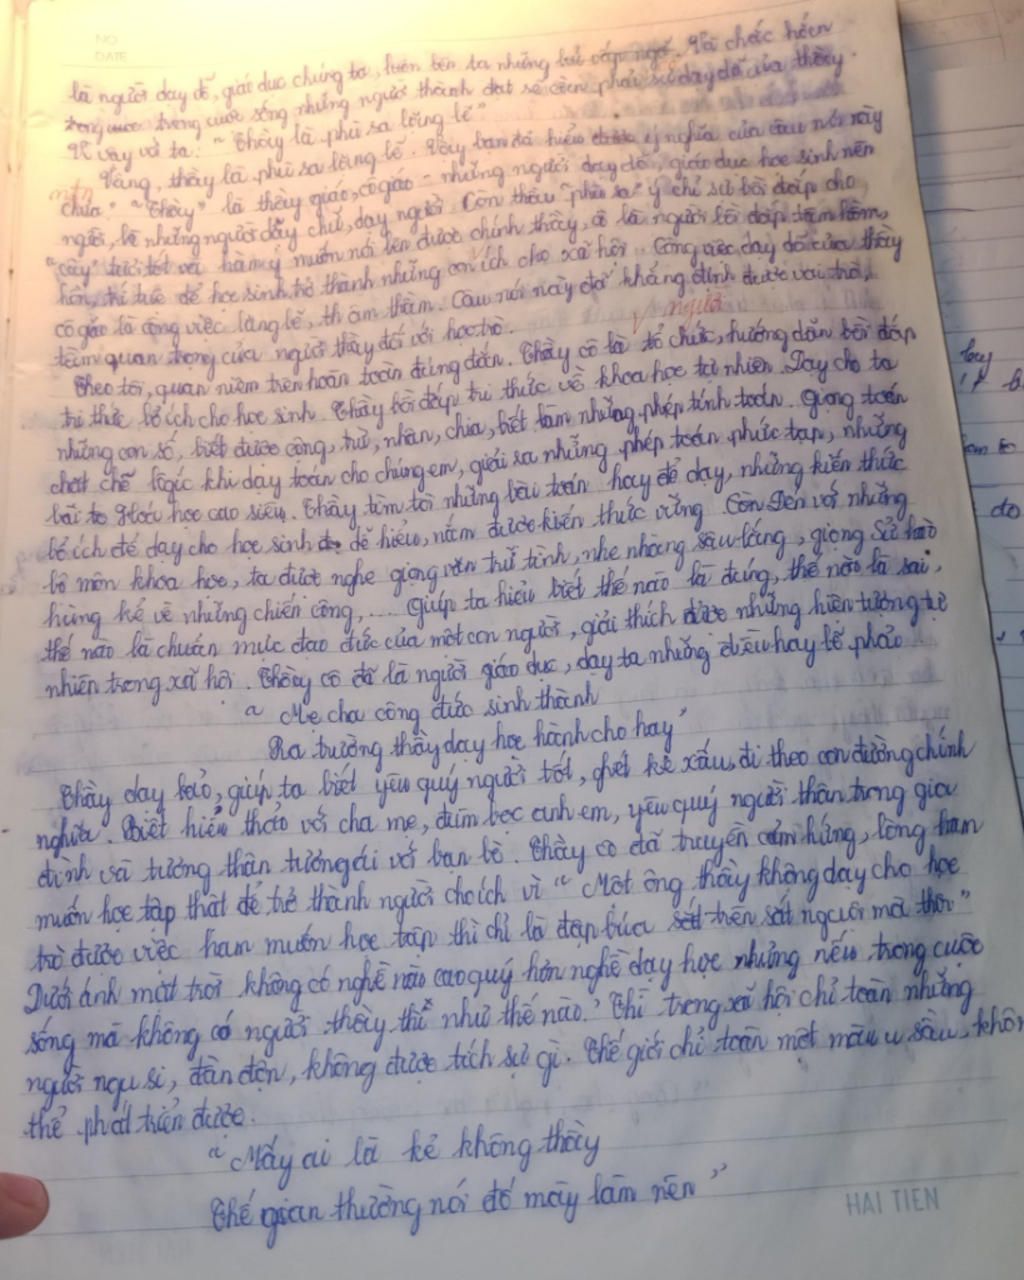 NO
DATE
là người dạy dỗ, giáo dục chúng ta, luôn bên ta những lúc vấp ngã. Và chắc hẳn
trong cuộc sống những người thành đạt sẽ cần phải sự dạy dỗ của thầy.
Vì vậy với ta: "Thầy là phù sa lặng lẽ"
Vâng, thầy là phù sa lặng lẽ. Vậy bạn đã hiểu ý nghĩa của câu nói này
chưa? "Thầy" là thầy giáo, cô giáo - những người dạy dỗ, giáo dục học sinh nên
người, là những người dạy chữ, dạy người. Còn thầy "phù sa" ý chỉ sự bồi đắp cho
"cây" tươi tốt với hàm ý muốn nói lên được chính thầy, cô là người bồi đắp tâm hồn,
trí tuệ để học sinh trở thành những con ích cho xã hội. Công việc dạy dỗ của thầy
cô giáo là công việc lặng lẽ, thầm. Câu nói này đã khẳng định được vai trò,
người
tầm quan trọng của người thầy đối với học trò.
Theo tôi, quan niệm trên hoàn toàn đúng đắn. Thầy cô là tổ chức, hướng dẫn bồi đắp
tri thức bổ ích cho học sinh. Thầy bồi đắp tri thức về khoa học tự nhiên. Dạy cho ta
những con số, biết được cộng, trừ, nhân, chia, biết làm những phép tính toán. Giọng toán
chặt chẽ lôgíc khi dạy toán cho chúng em, giải ra những phép toán phức tạp, những
bài to Hoá học cao siêu. Thầy tìm tòi những bài toán hay để dạy, những kiến thức
bổ ích để dạy cho học sinh dễ hiểu, nắm được kiến thức vững. Còn đến với những
bộ môn khoa học, ta được nghe giọng văn trữ tình, nhẹ nhàng sâu lắng, giọng Sử hào
hùng kể về những chiến công,... Giúp ta hiểu biết thế nào là đúng, thế nào là sai,
thế nào là chuẩn mực đạo đức của một con người, giải thích được những hiện tượng tự
nhiên trong xã hội. Thầy cô đã là người giáo dục, dạy ta những điều hay lẽ phải
"Mẹ cha công đức sinh thành
Ra trường thầy dạy học hành cho hay"
Thầy dạy bảo, giúp ta biết yêu quý người tốt, ghét kẻ xấu, đi theo con đường chính
nghĩa. Biết hiếu thảo với cha mẹ, đùm bọc anh em, yêu quý người thân trong gia
đình và tương thân tương ái với bạn bè. Thầy cô đã truyền cảm hứng, lòng ham
muốn học tập thật để trở thành người cho ích vì "Một ông thầy không dạy cho học
trò được việc ham muốn học tập thì chỉ là đập búa sắt trên sắt nguội mà thôi"
Dưới ánh mặt trời không có nghề nào cao quý hơn nghề dạy học nhưng nếu trong cuộc
sống mà không có người thầy thì như thế nào? Thì trong xã hội chỉ toàn những
người ngu si, đần độn, không được tích sự gì. Thế giới chỉ toàn một màu u sầu, khôn
thể phát triển được.
"Mấy ai là kẻ không thầy
Thế gian thường nói đố mày làm nên"
HAI TIEN